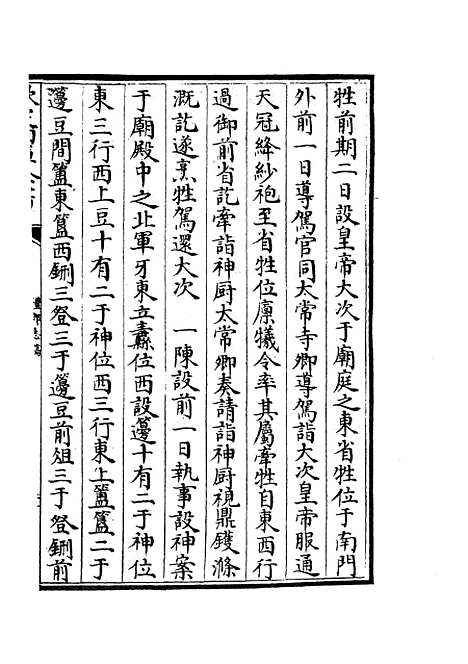 牲前期二日設皇帝大次于廟庭之東省牲位于南門
外前一日導駕官同太常寺卿導駕詣大次皇帝服通
天冠絳紗袍至省牲位廪犧令率其屬牽牲自東西行
過御前省訖牽詣神厨太常卿奏請詣神厨視鼎鑊滌
溉訖遂烹牲駕還大次　一陳設前一日執事設神案
于廟殿中之北軍牙東立纛位西設籩十有二于神位
東三行西上豆十有二于神位西三行東上簠簋二于
籩豆間簠東簋西鉶三㽅三于籩豆前俎三于㽅鉶前